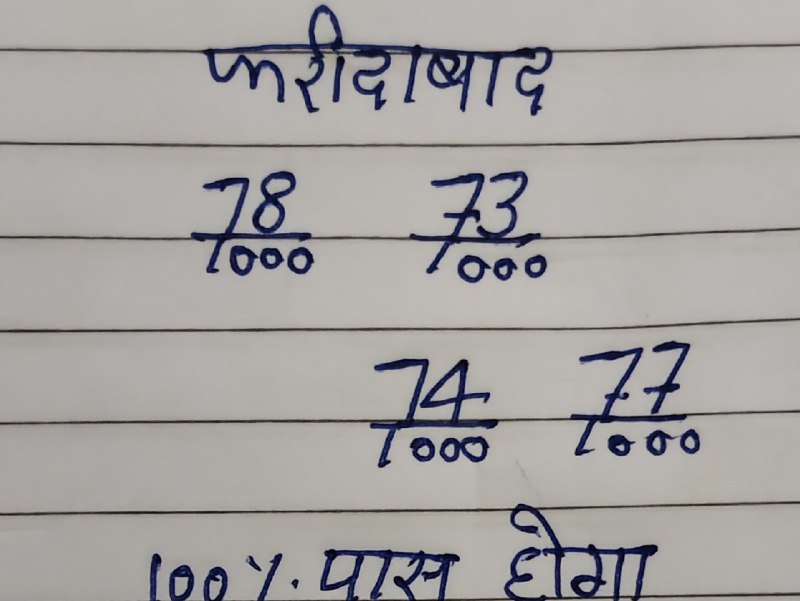 फरीदाबाद
78/1000 73/1000
74/1000 77/1000
100%. पास होगा